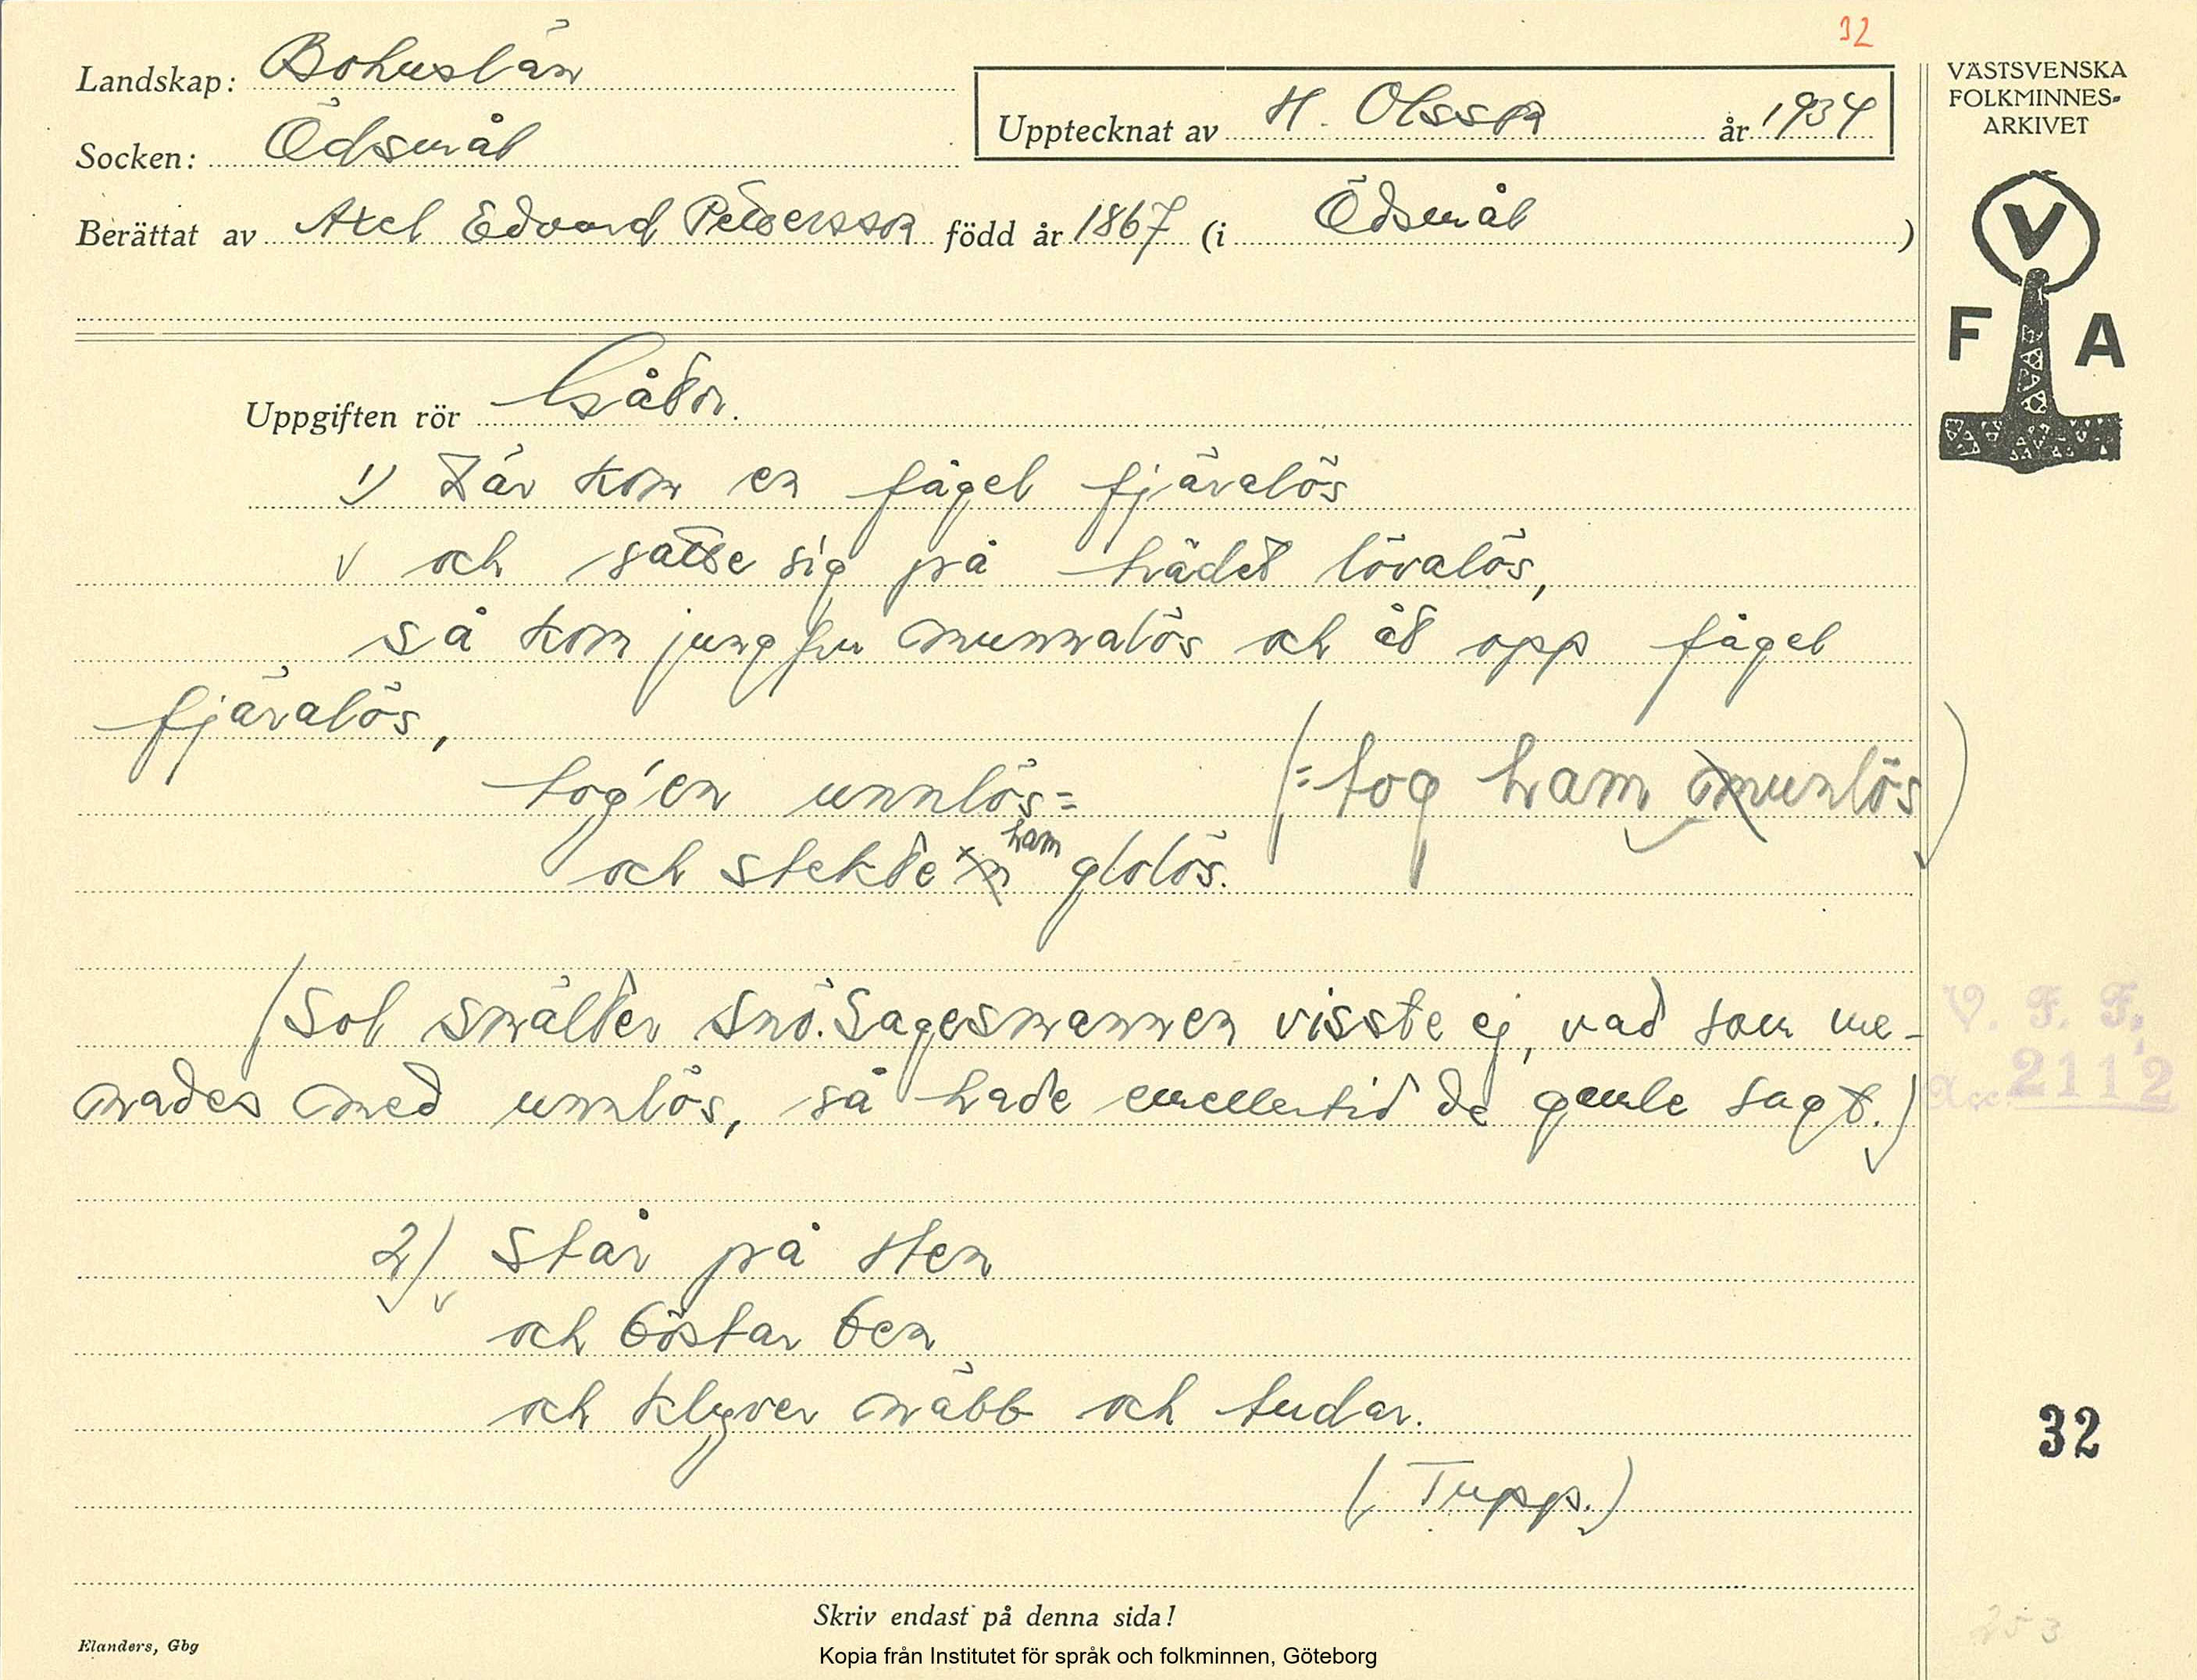 32
Landskap: Bohuslän
Socken: Ödsmål
Upptecknat av H. Olsson år 1934
Berättat av Axel Edvard Pettersson född år 1867 (i Ödsmål)
VÄSTSVENSKA
FOLKMINNES-
ARKIVET
V
F A
Uppgiften rör Gåtor.
1) Där kom en fågel fjäralös
och satte sig på trädet lövalös,
så kom jungfru munnalös och åt opp fågel
fjäralös,
tog'en unnlös= (=tog ham munlös)
och stekte ham glolös.
(Sol smälter snö. Sagesmannen visste ej, vad som me-
nades med unnlös, så hade emellertid de gamle sagt.)
V. F. F.
Acc. 2112
2) Står på sten
och böstar ben
och klyver näbb och tudar.
32
(Tupp.)
Skriv endast på denna sida!
Elanders, Gbg
253
Kopia från Institutet för språk och folkminnen, Göteborg